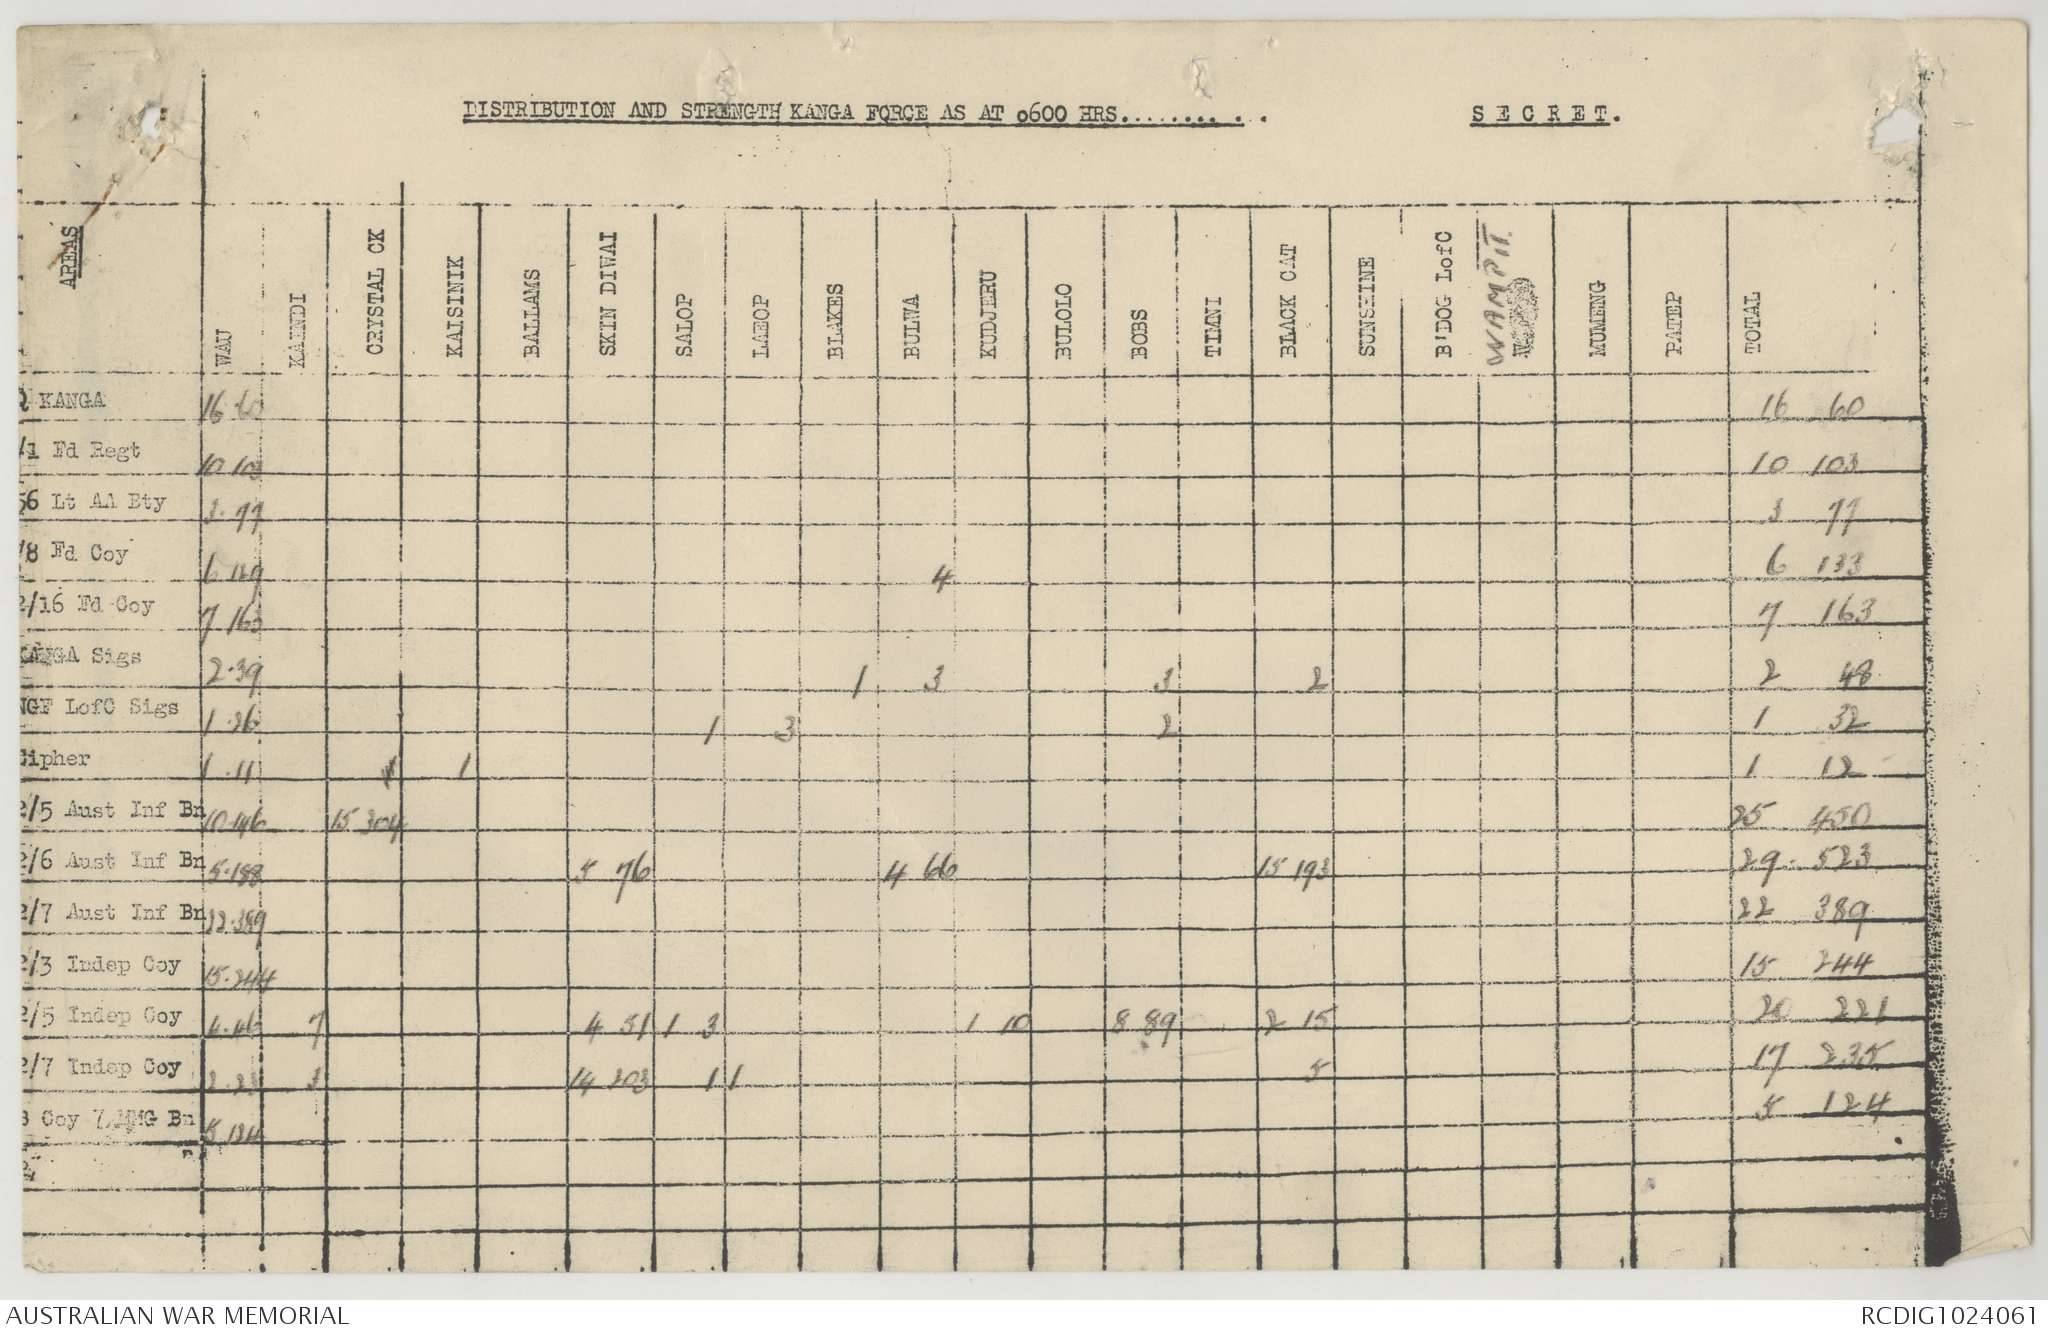 DISTRIBUTION AND STRENGTH KANGA FORCE AS AT 0600 HRS.......... S E C R E T.
AREAS WAU KAINDI CRYSTAL CK KAISINIK BALLAMS SKIN DIWAI SALOP LAEOP BLAKES BULWA KUDJERU BULOLO BOBS TIMNI BLACK CAT SUNSHINE B'DOG LofC WAMPIT MUMENG PATEP TOTAL
Q KANGA 16 60 16 60
/1 Fd Regt 10 103 10 103
56 Lt AA Bty 3 77 3 77
/8 Fd Coy 6 129 4 6 133
2/16 Fd Coy 7 163 7 163
KANGA Sigs 2 39 1 3 3 2 2 48
NGF LofC Sigs 1 26 1 3 2 1 32
Cipher 1 11 1 1 12
2/5 Aust Inf Bn 10 146 15 304 25 450
2/6 Aust Inf Bn 5 188 5 76 4 66 15 193 29 523
2/7 Aust Inf Bn 22 389 22 389
2/3 Indep Coy 15 244 15 244
2/5 Indep Coy 4 46 7 4 51 1 3 1 10 8 89 2 15 20 221
2/7 Indep Coy 2 23 3 14 203 1 1 5 17 235
B Coy 7 MMG Bn 5 124 5 124
AUSTRALIAN WAR MEMORIAL RCDIG1024061